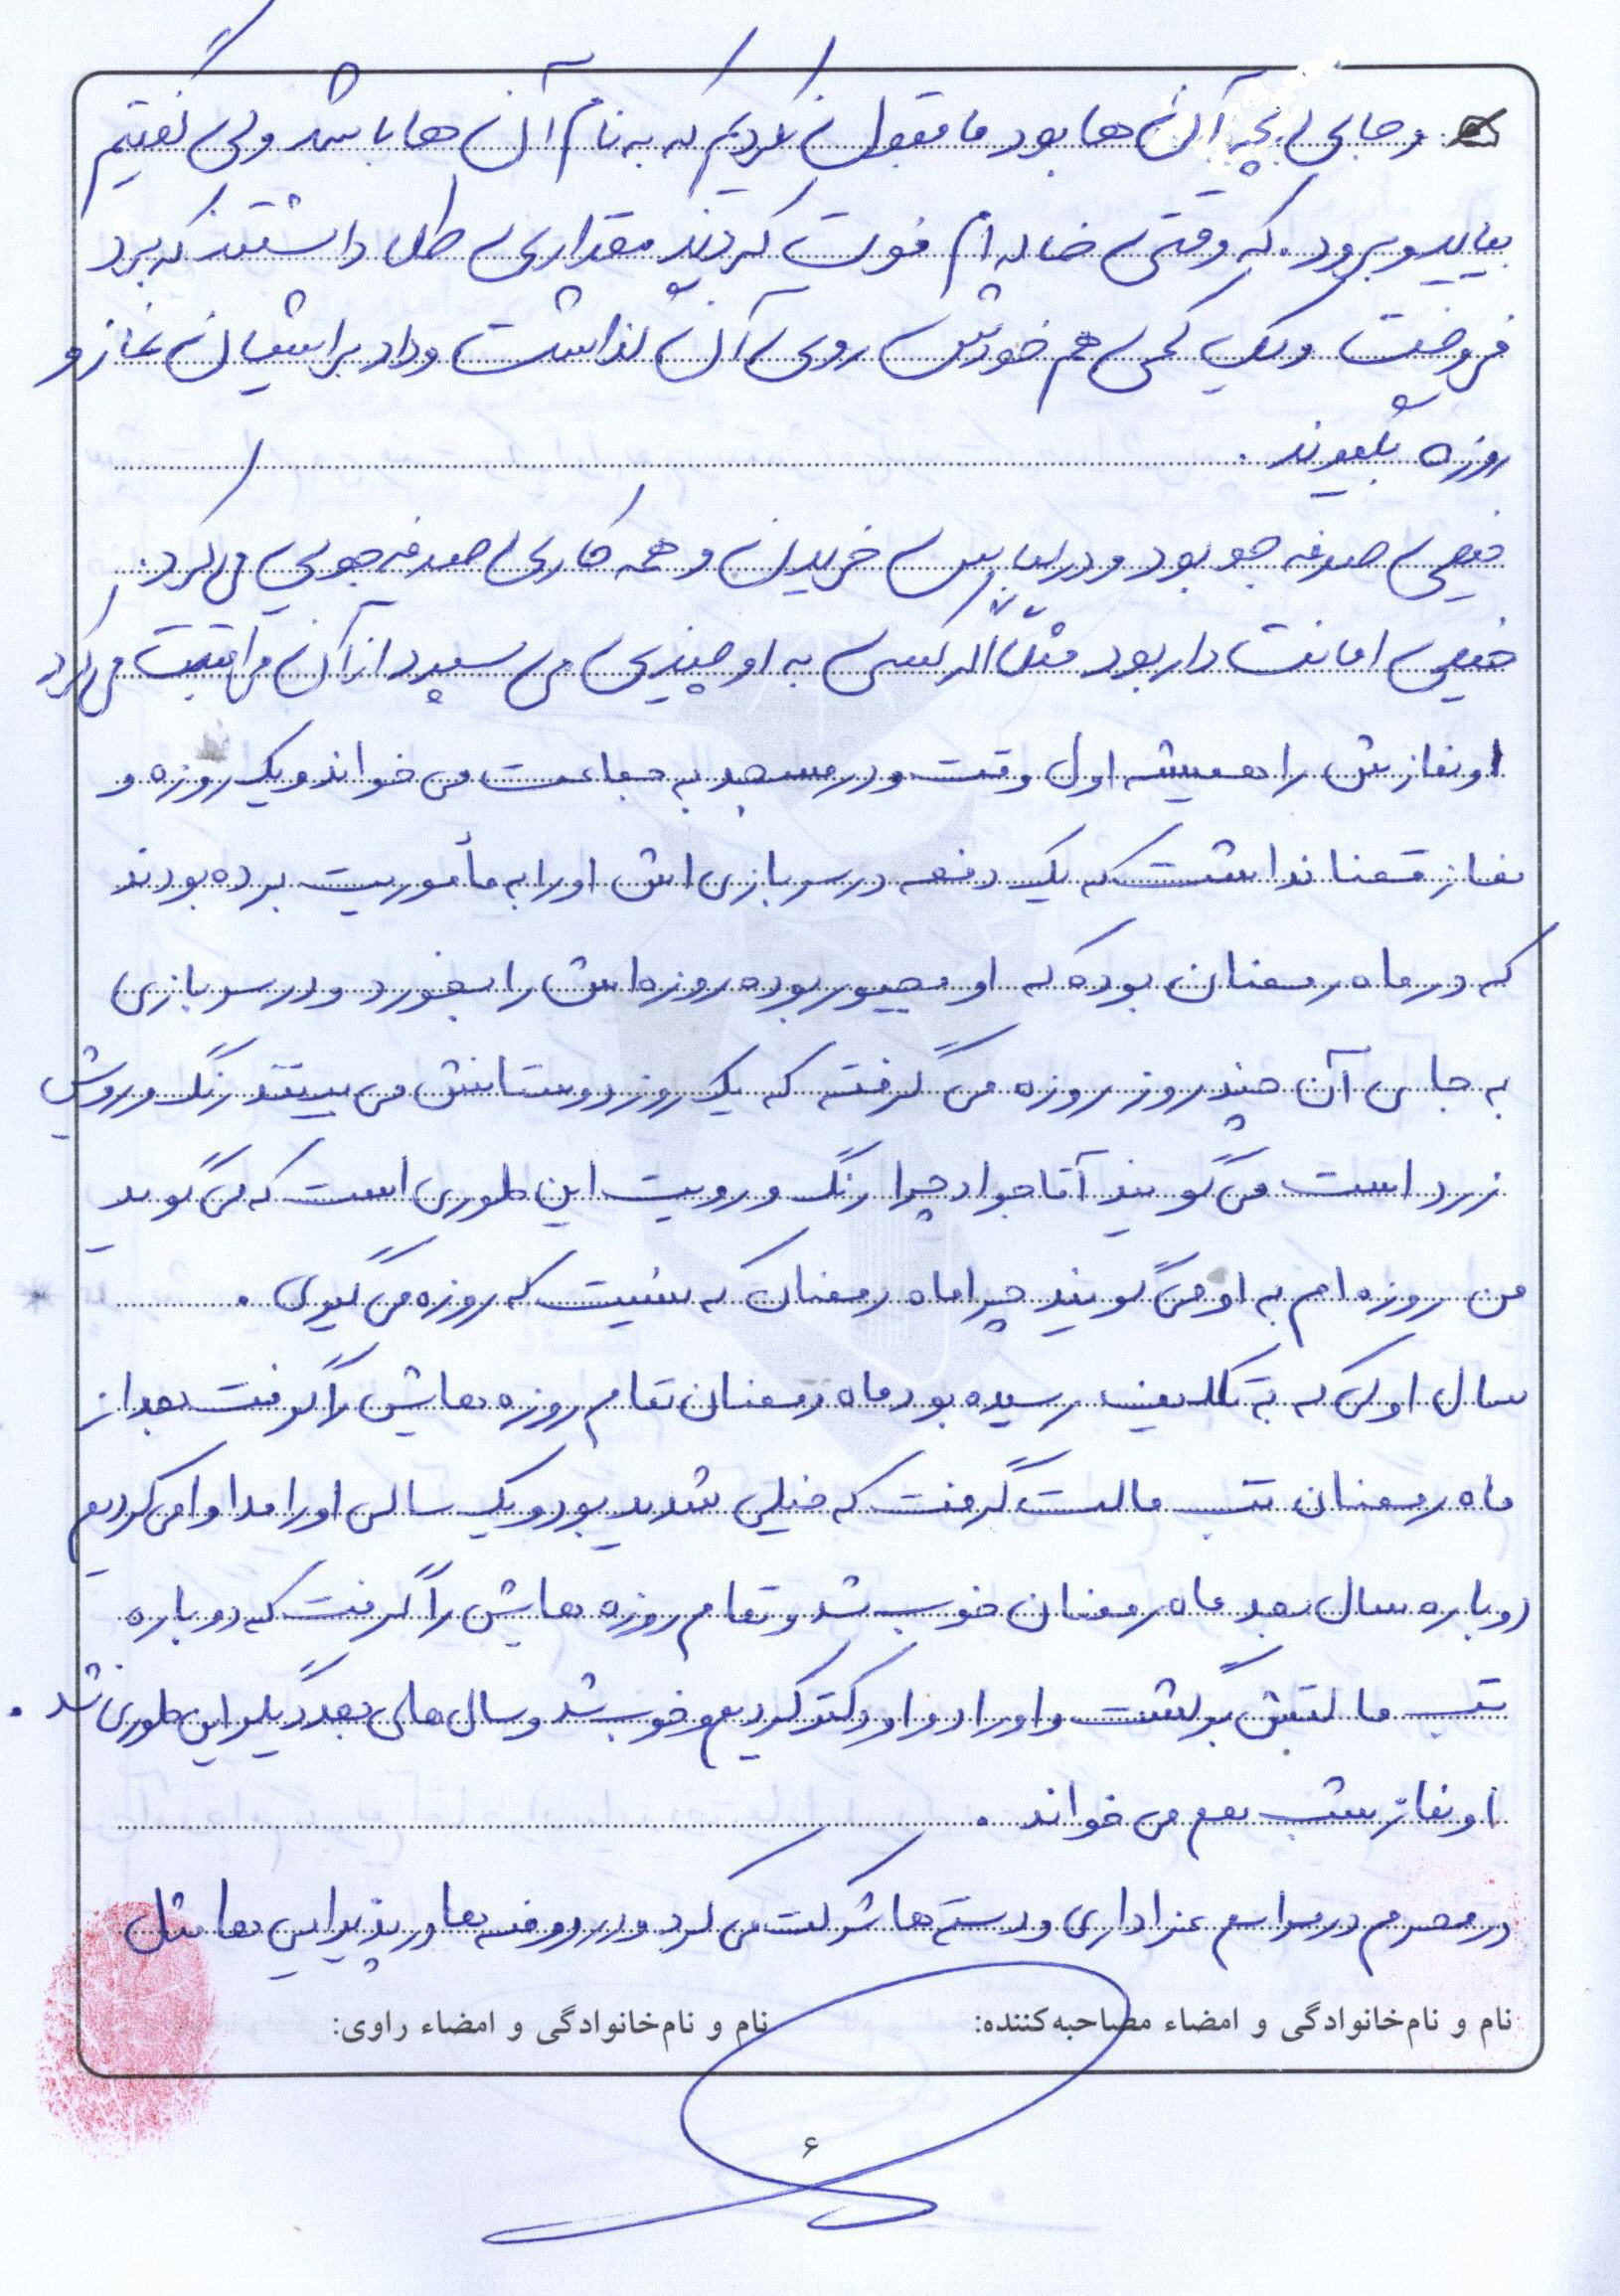 و جای بچه آن ها بود ما قبول نکردیم که به نام آن ها باشد ولی گفتیم
بیاید و برود. که وقتی خاله ام فوت کردند مقداری طلا داشتند که برد
فروخت و یک کمی هم خودش روی آن گذاشت و داد برایشان نماز و
روزه بگیرند.
خیلی صرفه جو بود و در لباس خریدن و همه کاری صرفه جویی می کرد.
خیلی امانت دار بود مثلاً اگر کسی به او چیزی می سپرد از آن مراقبت می کرد
او نمازش را همیشه اول وقت و در مسجد به جماعت می خواند و یک روزه و
نماز قضا نداشت که یک دفعه در سربازی اش او را به مأموریت برده بودند
که در ماه رمضان بوده که او مجبور بوده روزه اش را بخورد و در سربازی
به جای آن چند روز روزه می گرفته که یک روز دوستانش می بینند رنگ و روش
زرد است می گویند آقا جواد چرا رنگ و رویت این طوری است که می گوید
من روزه ام به او می گویند چرا ماه رمضان که نیست که روزه می گیری.
سال اولی که به تکلیف رسیده بود ماه رمضان تمام روزه هایش را گرفت بعد از
ماه رمضان تب مالت گرفت که خیلی شدید بود و یک سالی او را مداوا می کردیم
دوباره سال بعد ماه رمضان خوب شد و تمام روزه هایش را گرفت که دوباره
تب مالتش برگشت و او را دوا و دکتر کردیم و خوب شد و سال های بعد دیگر این طوری نشد.
او نماز شب هم می خواند.
در محرم در مراسم عزاداری و دسته ها شرکت می کرد و در روضه ها در پذیرایی ها مثل
نام و نام‌خانوادگی و امضاء مصاحبه‌کننده: نام و نام‌خانوادگی و امضاء راوی:
۶